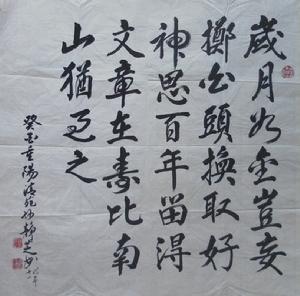 歲月如金豈妄
擲白頭換取好
神思百年留得
文章在壽比南
山猶過之
癸巳重陽